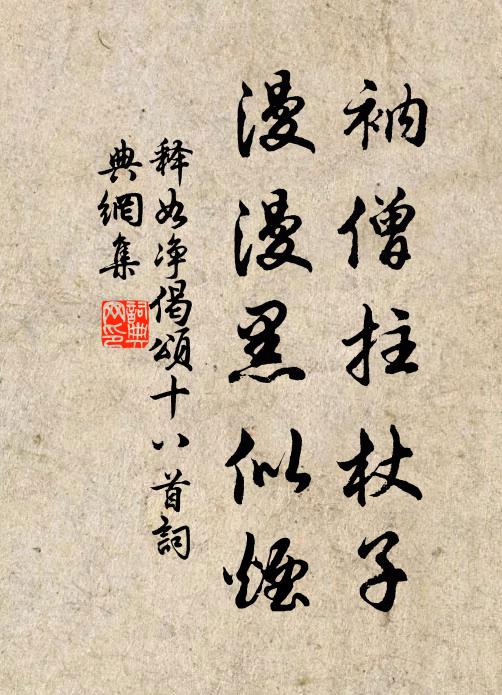 衲僧拄杖子
漫漫黑似煙
释如净偈頌十八首詞
典網集
詞典
网印